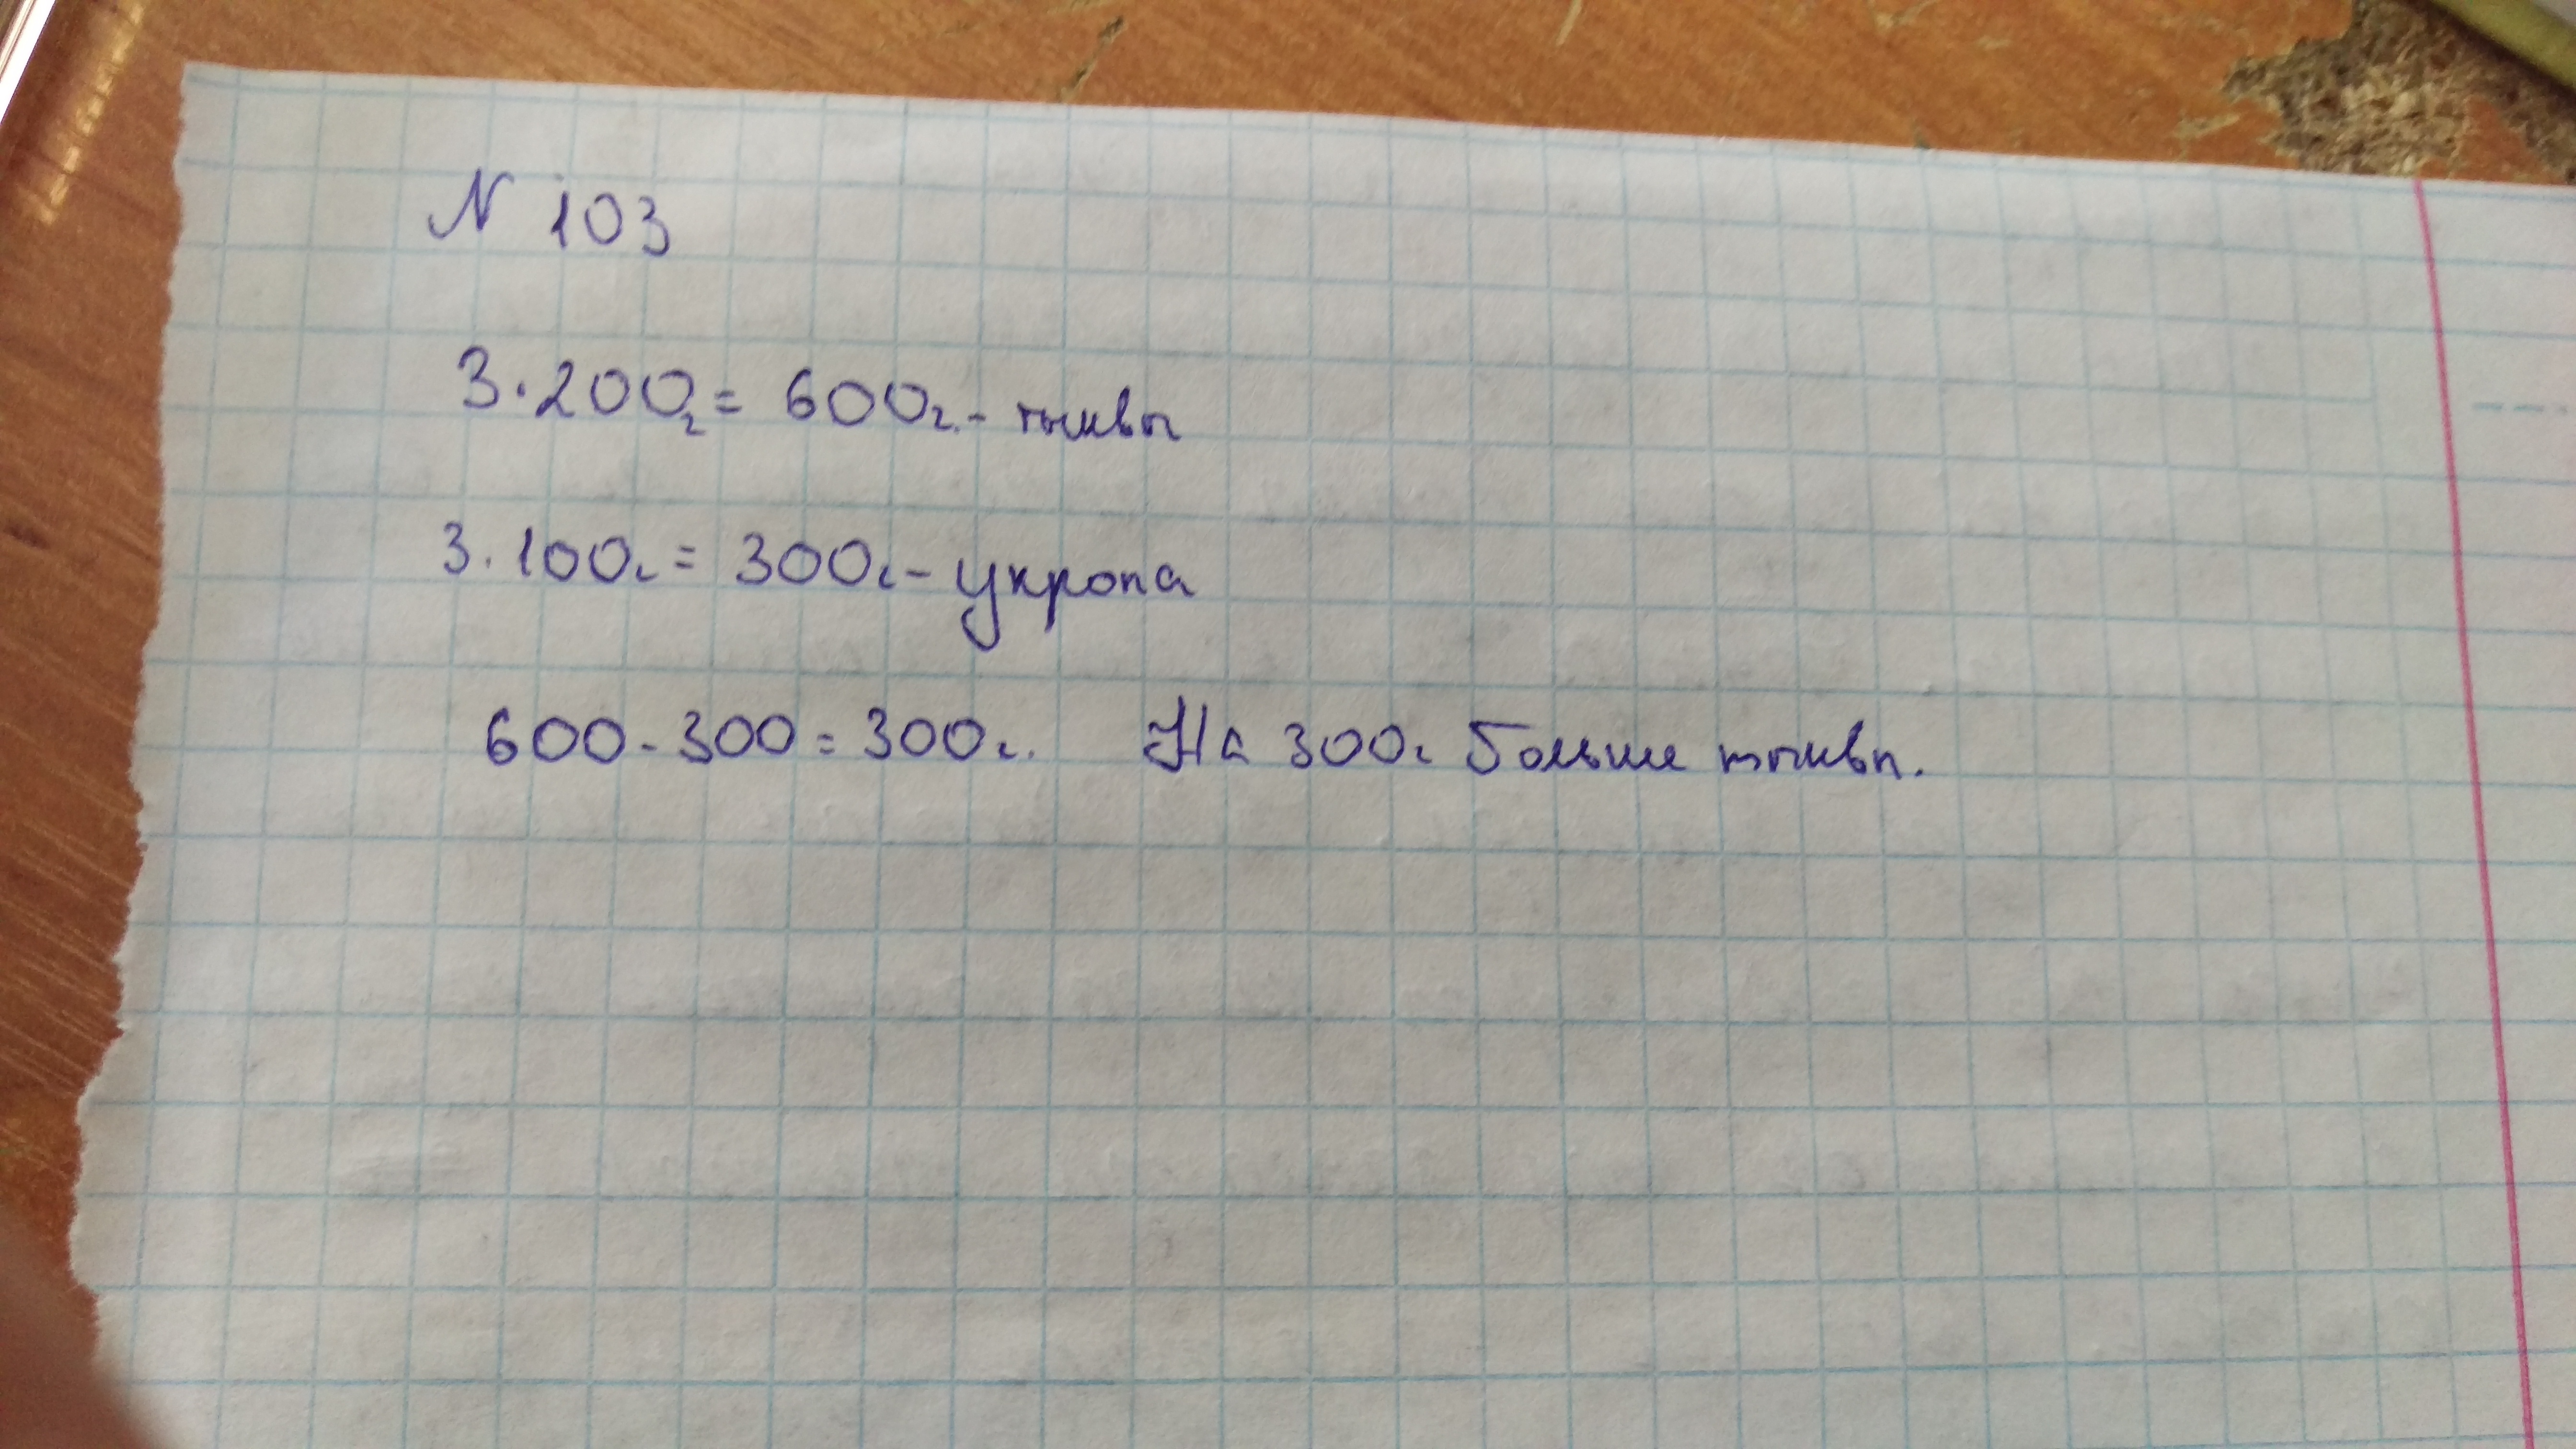 N 103
3·200г = 600г. - тыквы
3·100г = 300г - укропа
600 - 300 = 300г. На 300г больше тыквы.